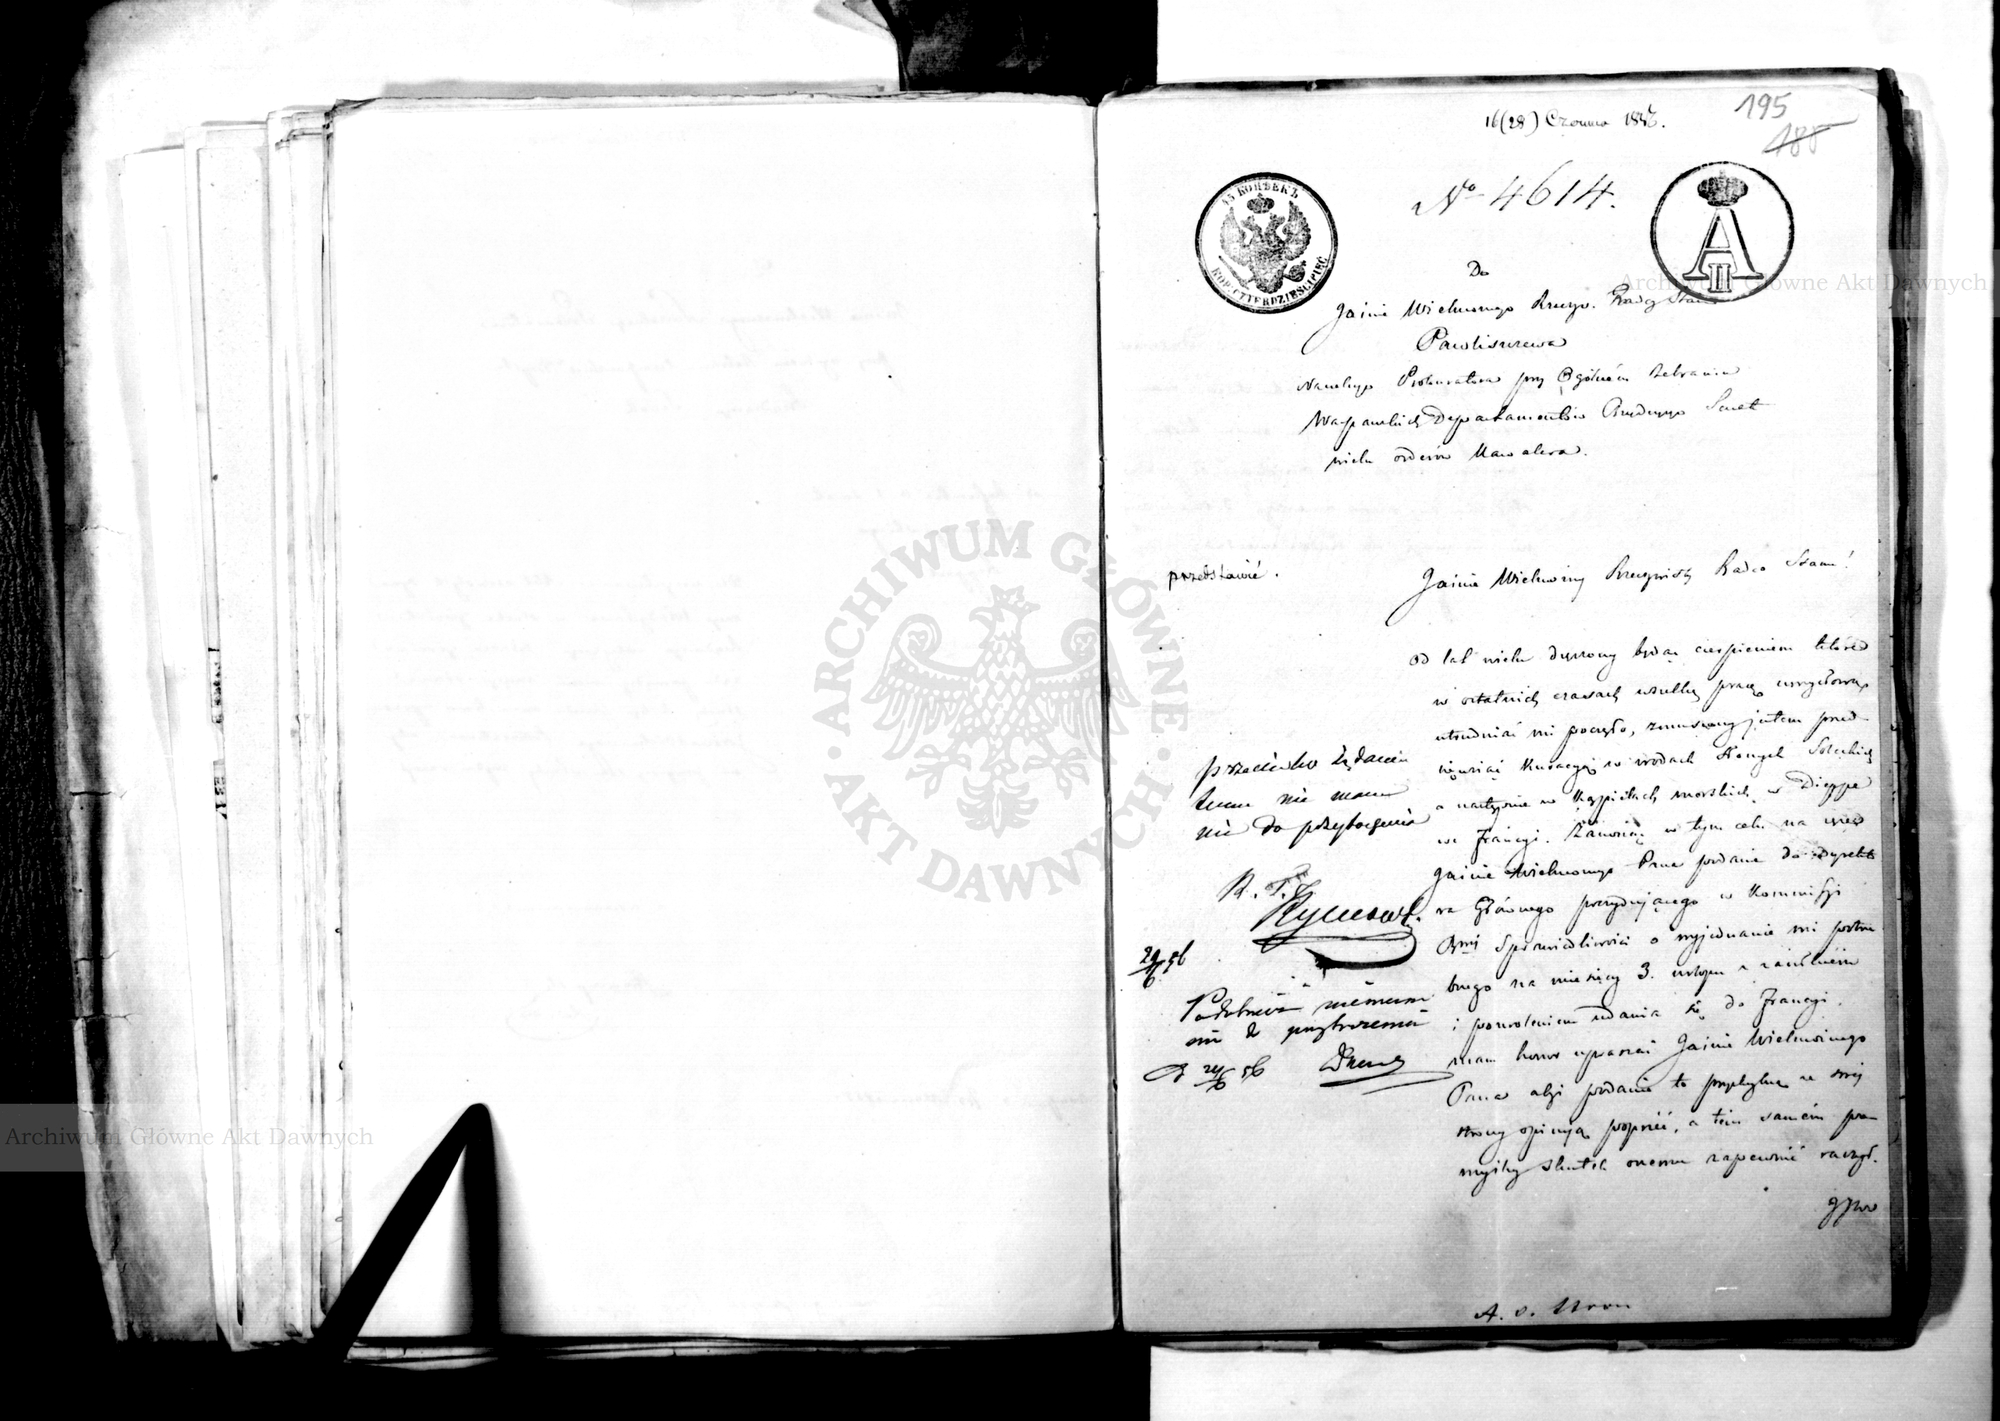 16(28) Czerwca 1856.
195
188
45 КОПѢЕКЪ
KOP. CZTERDZIEŚCI PIĘĆ
No 4614.
A II
Do
Jaśnie Wielmożnego Rzeczyw. Radcy Stanu
Pawliszczewa
Naczelnego Prokuratora przy Ogólném Zebraniu
Warszawskich Departamentów Rządzącego Senatu
wielu orderów Kawalera.
przedstawić.
Jaśnie Wielmożny Rzeczywisty Radco Stanu!
Od lat wielu dręczony będąc cierpieniem które
w ostatnich czasach wszelką pracę umysłową
utrudniać mi poczęło, zmuszony jestem przed-
sięwziąć kuracyę w wodach
a następnie w kąpielach morskich w Dieppe
we Francyi. Zanosząc w tym celu na ręce
Jaśnie Wielmożnego Pana podanie do Dyrekto
ra Głównego prezydującego w Kommissyi
Rząd: Sprawiedliwości o wyjednanie mi potrze
bnego na miesięcy 3. urlopu
i pozwoleniem udania się do Francyi.
mam honor upraszać Jaśnie Wielmożnego
Pana aby podanie to przychylną ze swéj
strony opinią poprzéć, a tém samém po-
myślny skutek onemu zapewnić raczył.
przeciwko żądaniu
temu nie mam
nic do przytoczenia
29/6 56
Podobnież niemam
nic do przytoczenia
29/6 56
ARCHIWUM GŁÓWNE
AKT DAWNYCH
Archiwum Główne Akt Dawnych
Archiwum Główne Akt Dawnych